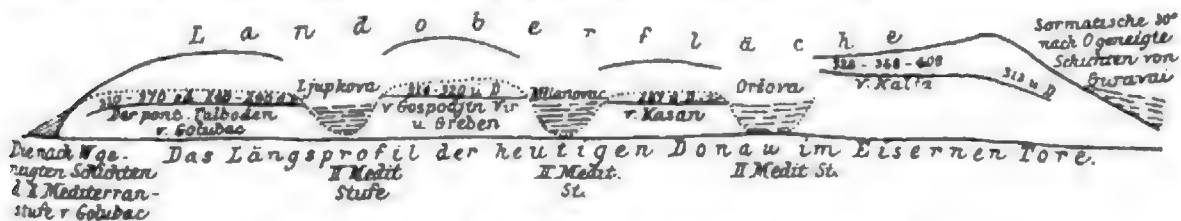 Landoberfläche
Sarmatische 30°
nach O geneigte
Schichten von
Guravai
Ljupkova
310 - 370
Der pont. Talboden
v. Golubac
310 - 320 u D
v Gospodjin Vir
u Greben
Milanovac
v. Kasan
Oršova
328 - 368 - 408
v. Kalta
313 u D
Die nach W ge-
neigten Schichten
d. II Mediterran-
stufe v Golubac
Das Längsprofil der heutigen Donau im Eisernen Tore.
II Medit
Stufe
II Medit.
St.
II Medit St.